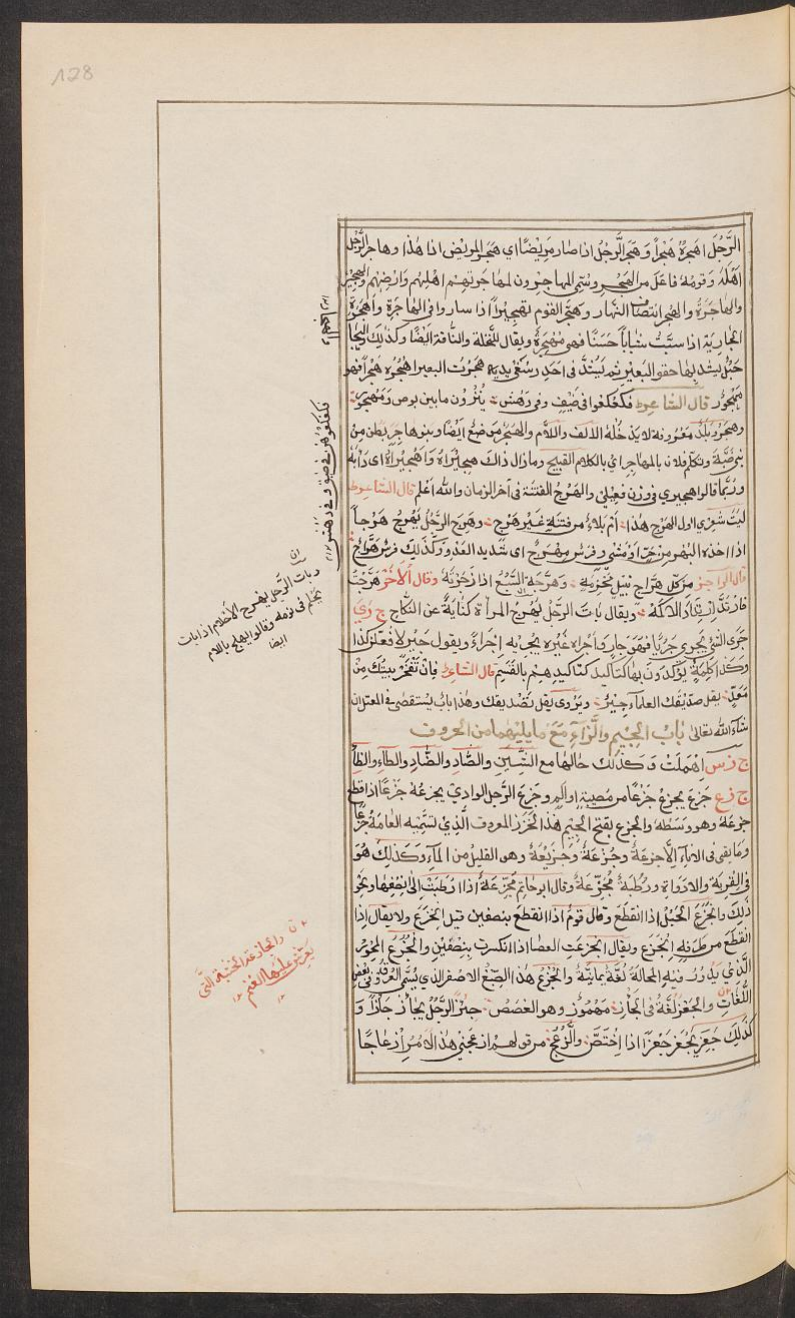 128
الرَّجُلَ اهجرُهُ هَجْراً وَهَجَر الرَّجُلُ اذا صَار مَرِيْضًا اى هَجَر المَريْض اذا هَذا وهاجر الرَّجُل
اَهْلَهُ وَقومَهُ فاعَلَ من الهَجْر وسُمّى المهاجرون لمهاجرتهم اهلهم وارضهم والهَجِيْر
والهاجَرَةُ والهجر انتصَافُ النَّهار وهَجَّر القوم تهجيراً اذا ساروا فى الهاجَرَة واَهْجَرَتِ
الجارِيَة اذا شَبَّتْ شَباباً حَسَنًا فهى مُهْجِرَةٌ ويقال للنّخلة والنّاقة ايضًا وكذلك الهِجَارُ
حَبْل يشد بها حقو البَعير ثم يُشَدّ فى احَد رسغى يديه هَجَرْتُ البعير اهْجُرُه هَجْراً فهو
مَهْجُوْر قال الشاعر فكَعْكعوا فى ضيْق وفى دهَش يَنْزُون ما بين بوص ومَهْجورٍ
وهَجَر بَلَدٌ معْروفة لا يدخُلُه الالف واللّام والهَجَر من ضبع ايضًا وبنو هاجر بطن مِنْ
بنى ضَبَّة وتكلّم فلان بالمهاجر اى بالكلام القبيح وما زال ذاك هِجِّيْراهُ واهْجِيْراهُ اى دَابَهُ
وربّما قالوا هِجيرى فى وزن فِعِيْلى والهَرْجُ الفتنَة فى آخر الزمان والله اَعْلم قال الشاعر
ليتَ شِعْرِي اول الهَرج هٰذا اَم بلاءٌ من فتنَةٍ غَيْر هَرْج وهَرِجَ الرَّجُل يَهْرِجُ هَرَجاً
اذا اخَذه البُهْر من حَرّ او مَشى وفرسٌ مِهْرَجٌ اى شديد العَدْو وكذلك فرسٌ هَرَّاج
قال الراجز من كل هَرّاج نَبِيْل مَحْزِمِه وهَرّجْتُ السَّبُعَ اذا زَجَرْتَهُ وقال الآخَرُ هَرَّجْتُ
فارتَدَّ ارْتِدَادَ الاكمَه ويقال بات الرجُل يَهْرِجُ المرأة كنايةً عن النّكاح ج ر ي
جَرَى الشئ يَجرى جَرْيا فهو جَارٍ واجراه غيره يجريه اِجْراءً ويقول جَيْر لافعلن كذا
وكذا كلِمةٌ يؤكدون بها كتاكيدهم بالقَسَم قال الشاعر فان تَفْخَرْ ببيتك من
مَعَدٍّ يقل صدّيقك العلماءُ جَيْرِ ويَرْوى يقل تَصْديقك وهذا بابٌ يُستقصٰى فى المعتل ان
شاء الله تعالى بَابُ الجيْم والزّاء مَعَ ما يليهما من الحروف
ج ز س اُهْمِلَتْ وَكذلك حالها مع الشّين والصّاد والضّاد والطّاء والظّاء
ج ز ع جَزِعَ يَجزَعُ جَزَعًا من مُصيبَةٍ او اَلَمٍ وجَزَع الرَّجل الوادىَ يجزعُهُ جَزْعًا اذا قطع
جزعَهُ وهو وَسَطه والجزع بفتح الجيْم هذا الخَرَز المعروف الَّذى تسَمّيه العَامةُ جَزْعًا
ومَا بَقى فى الاناءِ الّا جِزعَةٌ وجُزْعَةٌ وجُزَيْعَةٌ وهو القليل من المَاءِ وكذلك هُوَ
فى القِربَة والادَواة ورُطَبَةٌ مُجَزِّعةٌ وقال ابو حاتِم مُجَزّعَةٌ اذا اَرْطَبَت الى نِصْفِها ونحْو
ذلك وانجَزَعَ الحَبْلُ اذا انقطَعَ وقال قومٌ اذا انقطعَ بنصفين قيل انجَزَعَ ولا يقال اِذا
انقطَعَ من طَرَفِهِ انجَزَعَ ويقال انجزعَتِ العصا اذا انكسرت بنِصْفَيْن والجُزْعُ المحوَرُ
الَّذى يَدُوْرُ فيه المحَالَةُ لغةٌ يمانيّةٌ والجُزْعُ هذا الصِّبْغ الاصْفر الذى يُسَمّى العُروق فى بعض
اللُّغَات والجَعْز لغَةٌ فى الجَأز مَهْمُوزٌ وهو الغصَصُ جئز الرَّجُلُ يجأز جَأزاً وَ
كذلك جَعِزَ يَجْعَز جَعْزًا اذا اغْتَصَّ والزَّعْجُ من قولهم ازعَجَنى هٰذا الامرُ ازعَاجًا
فكعكعوهنّ فى ضيق وفى دهش
وبات الرَّجُل يهْرج الاحْلام اذا بات
يحلم فى نومه وقالوا يهلج باللام
ايضا
والجازعة الخشبة التى
يعرّش عليها العنب